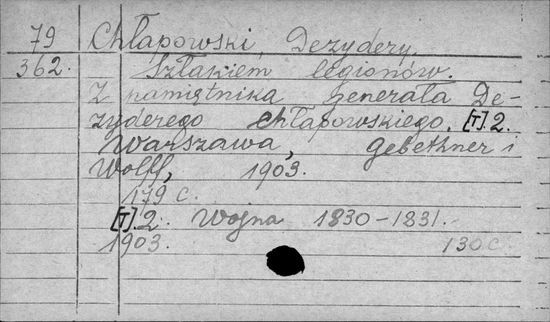 79 Chłapowski, Dezydery.
362. Szłakiem legionów.
Z pamiętnika Generała De-
zyderego Chłapowskiego. [T]. 2.
Warszawa, Gebethner i
Wolff, 1903.
179 c.
[T]. 2. Wojna 1830-1831.-
1903. 130 c.